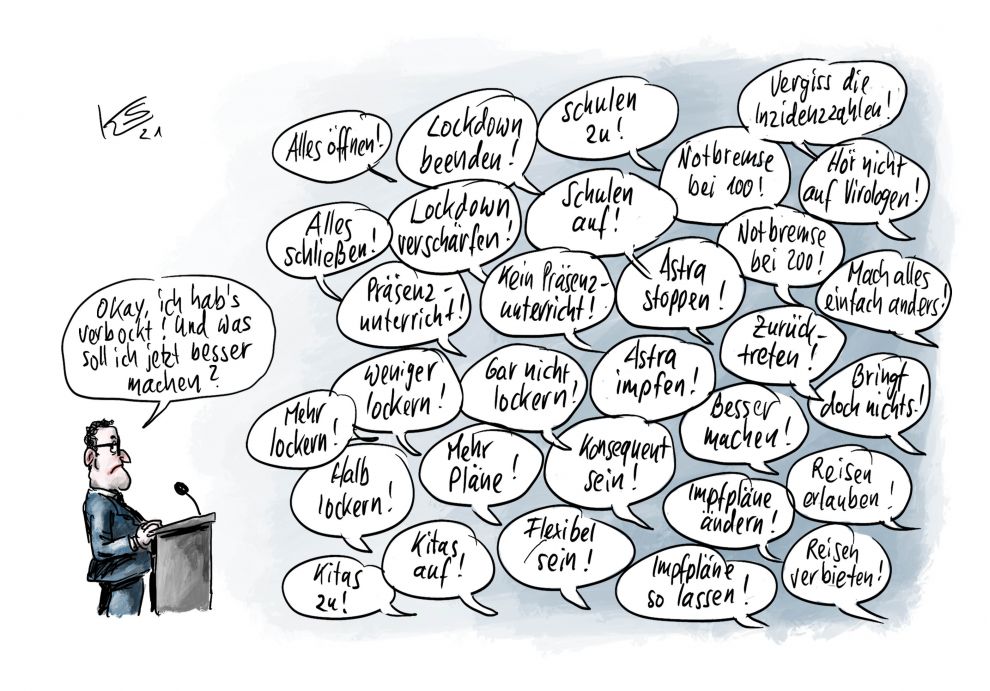 KS
21
Okay, ich hab's
verbockt! Und was
soll ich jetzt besser
machen?
Alles öffnen!
Lockdown
beenden!
Schulen
zu!
Vergiss die
Inzidenzzahlen!
Notbremse
bei 100!
Hör nicht
auf Virologen!
Alles
schließen!
Lockdown
verschärfen!
Schulen
auf!
Notbremse
bei 200!
Mach alles
einfach anders!
Präsenz-
unterricht!
Kein Präsenz-
unterricht!
Astra
stoppen!
Zurück-
treten!
Weniger
lockern!
Gar nicht
lockern!
Astra
impfen!
Bringt
doch nichts!
Mehr
lockern!
Besser
machen!
Halb
lockern!
Mehr
Pläne!
Konsequent
sein!
Impfpläne
ändern!
Reisen
erlauben!
Kitas
zu!
Kitas
auf!
Flexibel
sein!
Impfpläne
so lassen!
Reisen
verbieten!